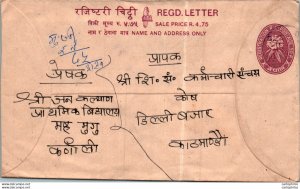 रजिष्टरी चिट्ठी REGD. LETTER
बिक्री मूल्य रु. ४.७५ SALE PRICE R. 4.75
नाम र ठेगाना मात्र NAME AND ADDRESS ONLY
प्रेषक
श्री जन कल्याण
प्राथमिक विद्यालय
कर्णाली
प्रापक
श्री शि. सं. कर्मचारी संचय
कोष
डिल्ली बजार
काठमाण्डौ